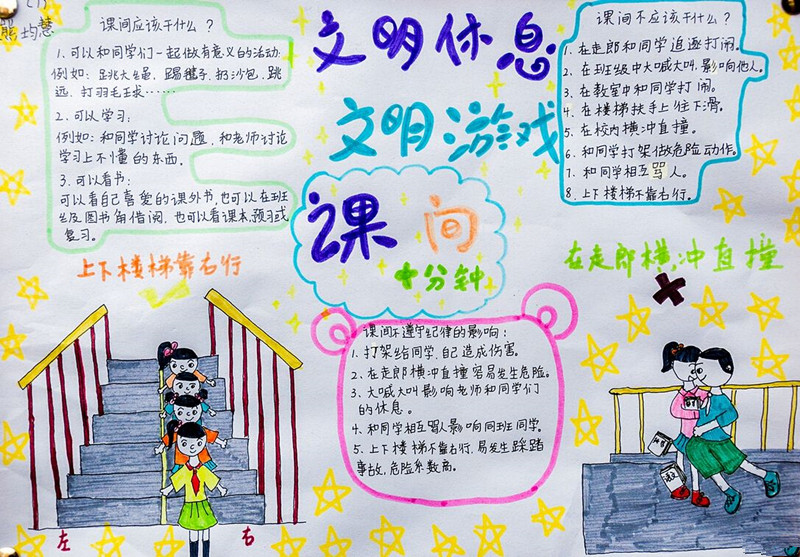 课间应该干什么？
1.可以和同学们一起做有意义的活动.
例如：跳大绳、踢毽子、扔沙包、跳
远、打羽毛球……
2.可以学习：
例如:和同学讨论问题，和老师讨论
学习上不懂的东西。
3.可以看书：
可以看自己喜爱的课外书,也可以在班
级图书角借阅,也可以看课本,预习或
复习。
文明休息
文明游戏
课间
十分钟
课间不应该干什么？
1.在走郎和同学追逐打闹。
2.在班级中大喊大叫,影响他人。
3.在教室中和同学打闹。
4.在楼梯扶手上往下滑。
5.在校内横冲直撞。
6.和同学打架做危险动作。
7.和同学相互骂人。
8.上下楼梯不靠右行。
上下楼梯靠右行
在走郎横冲直撞
课间不遵守纪律的影响：
1.打架给同学,自己造成伤害。
2.在走郎横冲直撞容易发生危险。
3.大喊大叫影响老师和同学们
的休息。
4.和同学相互骂人影响同班同学。
5.上下楼梯不靠右行,易发生踩踏
事故,危险系数高。
左
右